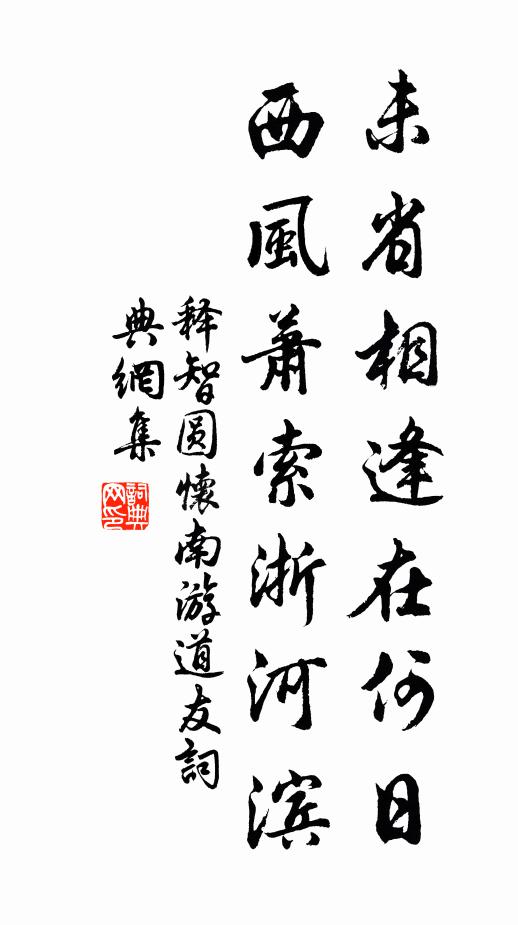 未省相逢在何日
西風蕭索浙河滨
释智圆懷南游道友詞
典網集
詞典网印